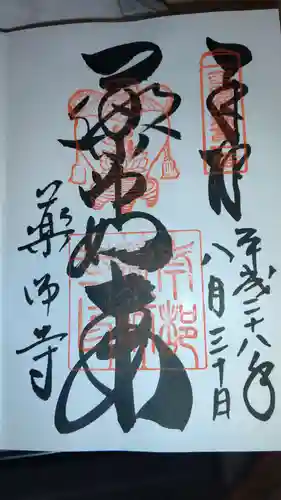 奉拝
平成二十八年
八月三十日
薬師如来
薬師寺